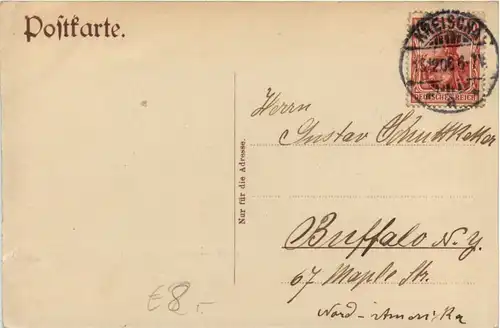 Postkarte.
KREISCHA
DEUTSCHES REICH
Nur für die Adresse.
Herrn
Gustav
Buffalo N. Y.
67 Maple Str.
Nord-Amerika
€8.-